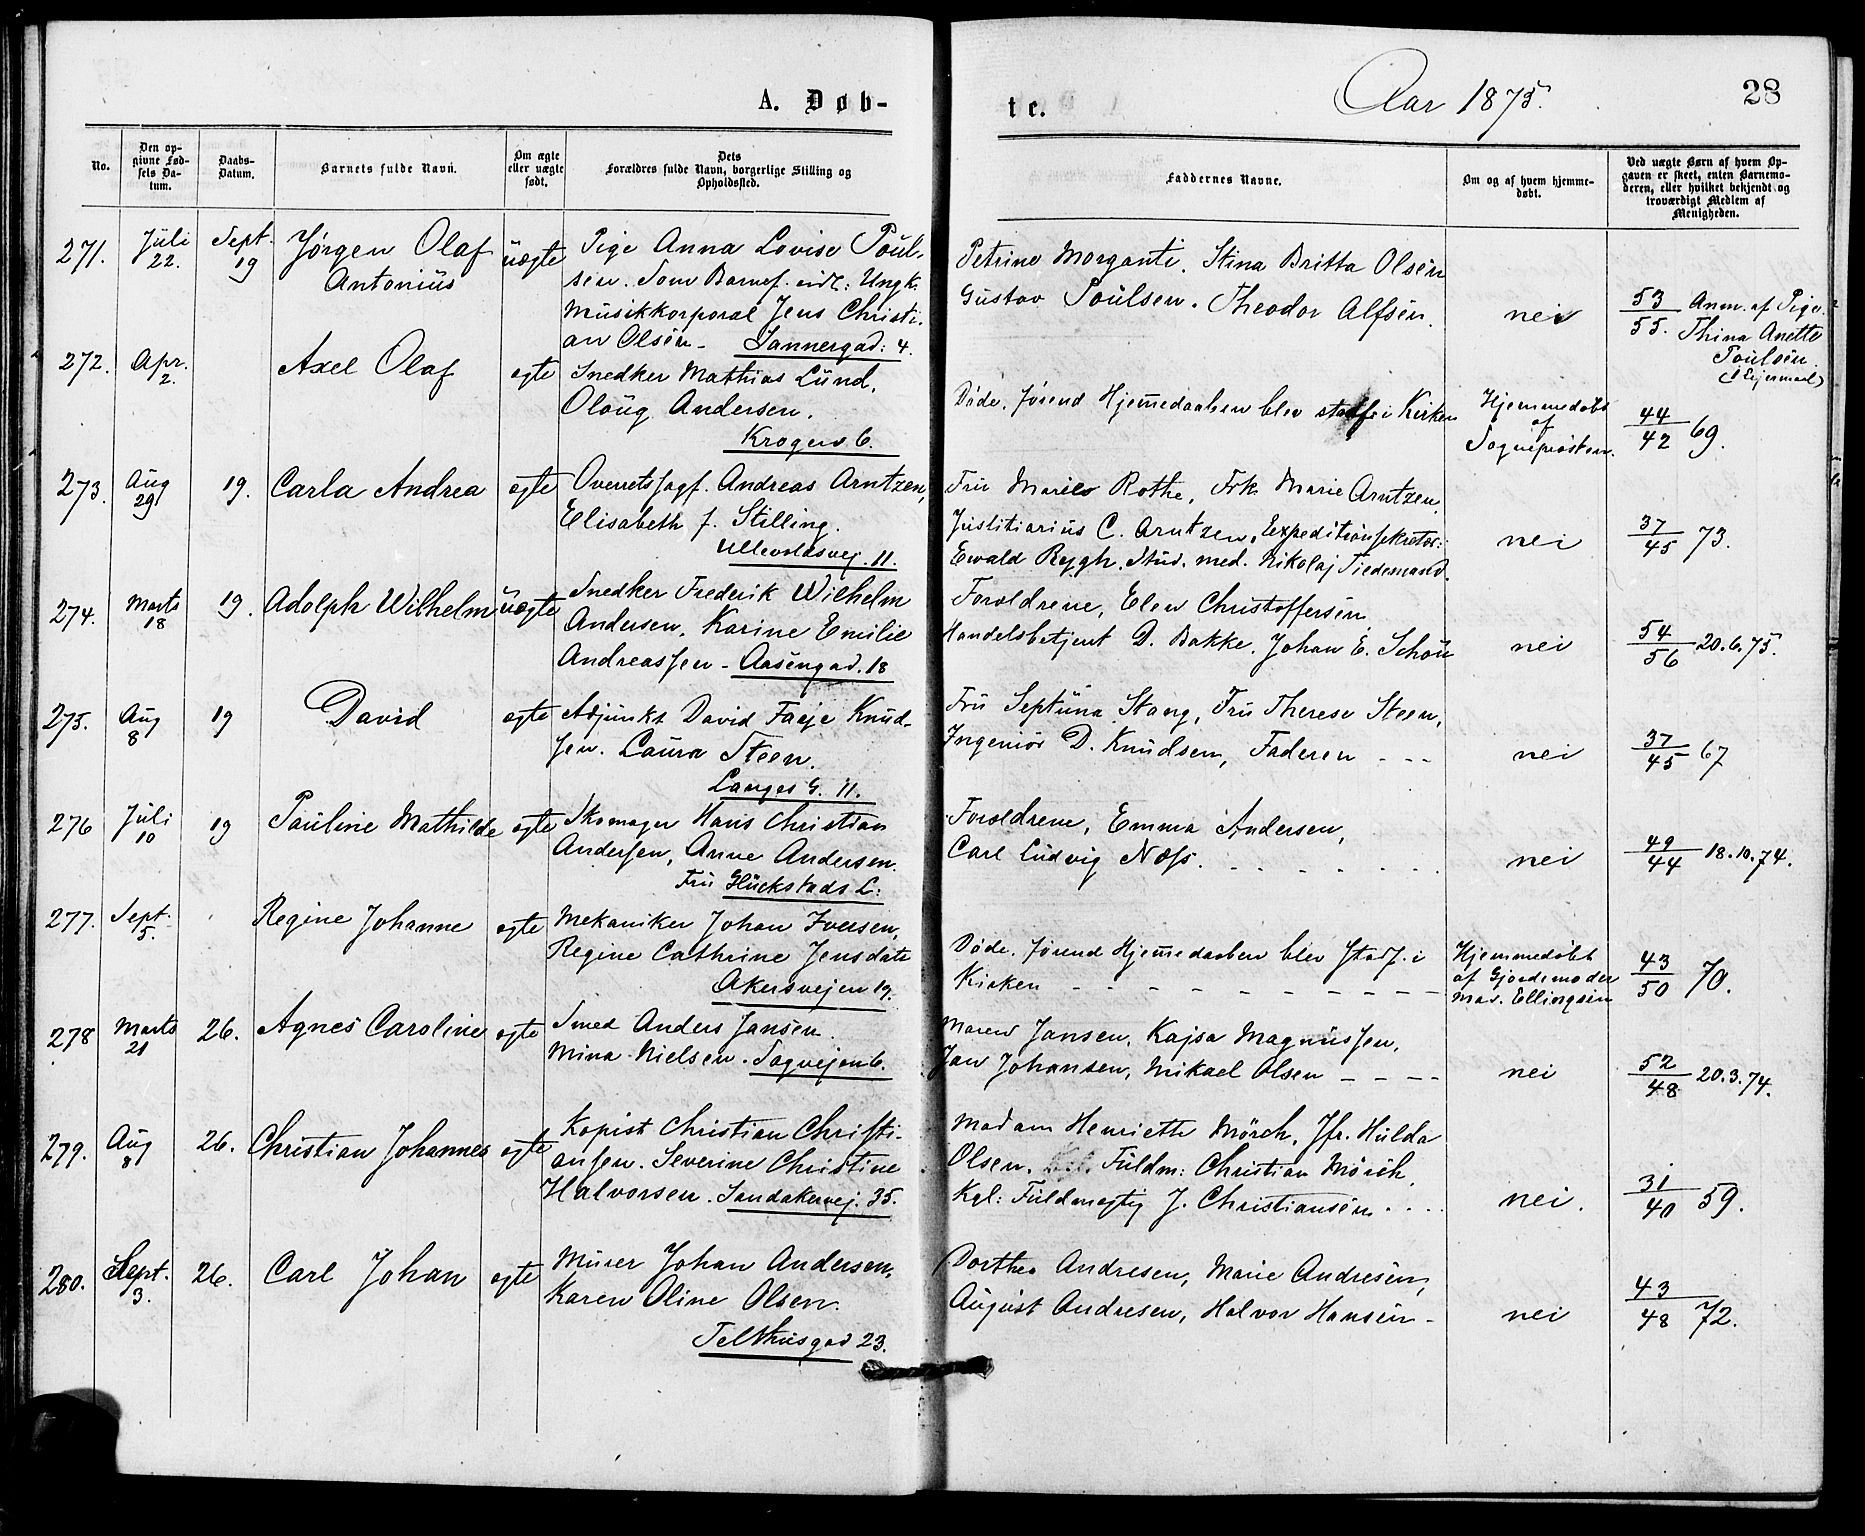 A. Døb-
te.
Aar 1875.
28
No.
Den op-
givne Fød-
sels Da-
tum.
Daabs-
Datum.
Barnets fulde Navn.
Om ægte
eller uægte
født.
Dets
Forældres fulde Navn, borgerlige Stilling og
Opholdssted.
Faddernes Navne.
Om og af hvem hjemme-
døbt.
Ved uægte Børn af hvem Op-
gaven er skeet, enten Barnemo-
deren, eller hvilket bekjendt og
troværdigt Medlem af
Menigheden.
271. Juli 22. Sept. 19 Jørgen Olaf
Antonius
uægte
Pige Anna Lovise Poul-
sen. Som Barnef. Ungk.
Musikkorporal Jens Christi-
an Olsen - Sannergad: 4.
Petrine Morganti. Stina Britta Olsen
Gustav Poulsen. Theodor Alfsen.
nei
53/55. Anm. af Pige
Thina Anette
Poulsen
272. Apr. 2. Axel Olaf ægte
Snedker Mathias Lund,
Olaug Andersen.
Krogens 6.
Døde, førend Hjemedaaben blev i Kirken
Hjemmedøbt
af
Sognepresten.
44/42 69.
273. Aug 29 19. Carla Andrea ægte
Overretssagf. Andreas Arntzen,
Elisabeth f. Stilling.
Ullevoldsvej. 11.
Fru Marie Rothe, Frk. Marie Arntzen
Justitiarius C. Arntzen, Expeditionssekretær:
Ewald Rygh, Stud. med. Nikolaj Tiedemand.
nei
37/45 73.
274. Marts 18 19. Adolph Wilhelm uægte
Snedker Frederik Wilhelm
Andersen, Karine Emilie
Andreassen - Aasengad. 18
Forældrene, Elen Christoffersen,
Handelsbetjent D. Bakke. Johan E. Schou
nei
54/56 20.6.75.
275. Aug 8 19 David ægte
Adjunkt David Faeje Knud-
sen. Laura Steen.
Langes G. 11.
Fru Septima Stang, Fru Therese Steen,
Ingeniør D. Knudsen, Faderen - - -
nei
37/45 67
276 Juli 10 19 Pauline Mathilde ægte
Skomager Hans Christian
Andersen, Anne Andersen.
Fru Glückstads L:
Forældrene, Emma Andersen,
Carl Ludvig Næss. - - - - - -
nei
49/44 18.10.74.
277. Sept. 5. Regine Johanne ægte
Mekaniker Johan Iversen,
Regine Cathrine Jensdatr
Akersvejen 19.
Døde, førend Hjemedaaben blev stadf. i
Kirken - - - - - - - - -
Hjemmedøbt
af Gjordemoder
Mad. Ellingsen
43/50 70.
278 Marts 21 26. Agnes Caroline ægte
Smed Anders Jansen.
Mina Nielsen. Sagvejen 6.
Maren Jansen, Kajsa Magnussen,
Jan Johansen, Mikael Olsen - - - -
nei
52/48 20.3.74.
279. Aug 8 26. Christian Johannes ægte
Kopist Christian Christi-
ansen. Severine Christine
Halvorsen. Sandakervej. 35.
Madam Henriette Mörch, Jfr. Hulda
Olsen, Fuldm: Christian Mörch,
Kgl: Fuldmægtig J. Christiansen. . . .
nei.
31/40 59.
280. Sept. 3. 26. Carl Johan ægte
Murer Johan Andersen,
Karen Oline Olsen.
Telthusgad 23.
Dorthea Andresen, Marie Andresen,
August Andresen, Halvor Hansen -
nei
43/48 72.